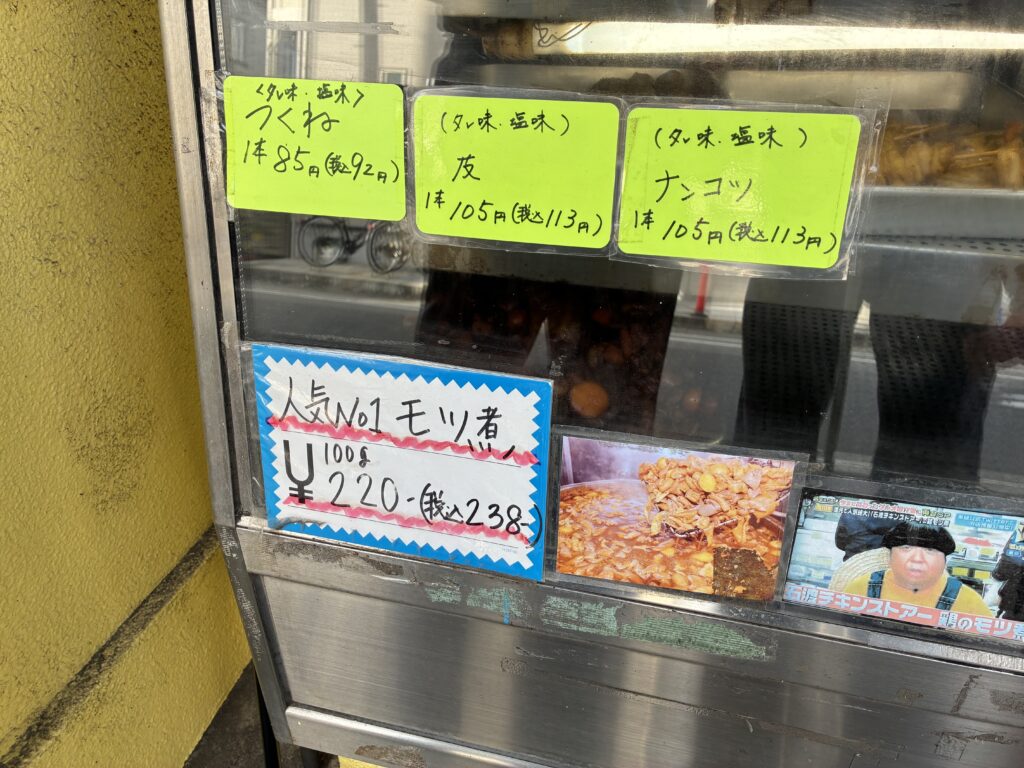 <タレ味・塩味>
つくね
1本 85円(税込92円)
(タレ味・塩味)
皮
1本 105円(税込113円)
(タレ味・塩味 )
ナンコツ
1本 105円(税込113円)
人気No1 モツ煮
¥ 100g
220-(税込238-)
石渡チキンストアー 鶏のモツ煮